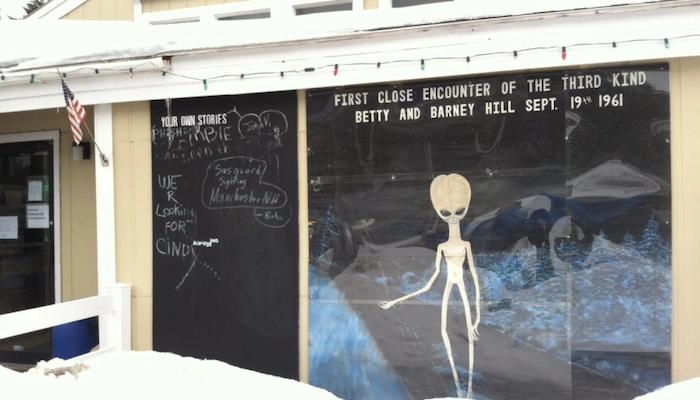 YOUR OWN STORIES
John V.
Sasquach
Sighting
Manchester NH
- Bob
WE
R
Looking
FOR
CINDY
Always
FIRST CLOSE ENCOUNTER OF THE THIRD KIND
BETTY AND BARNEY HILL SEPT. 19TH 1961